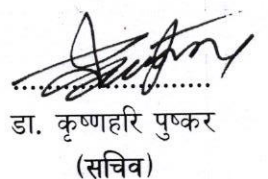 डा. कृष्णहरि पुष्कर
(सचिव)